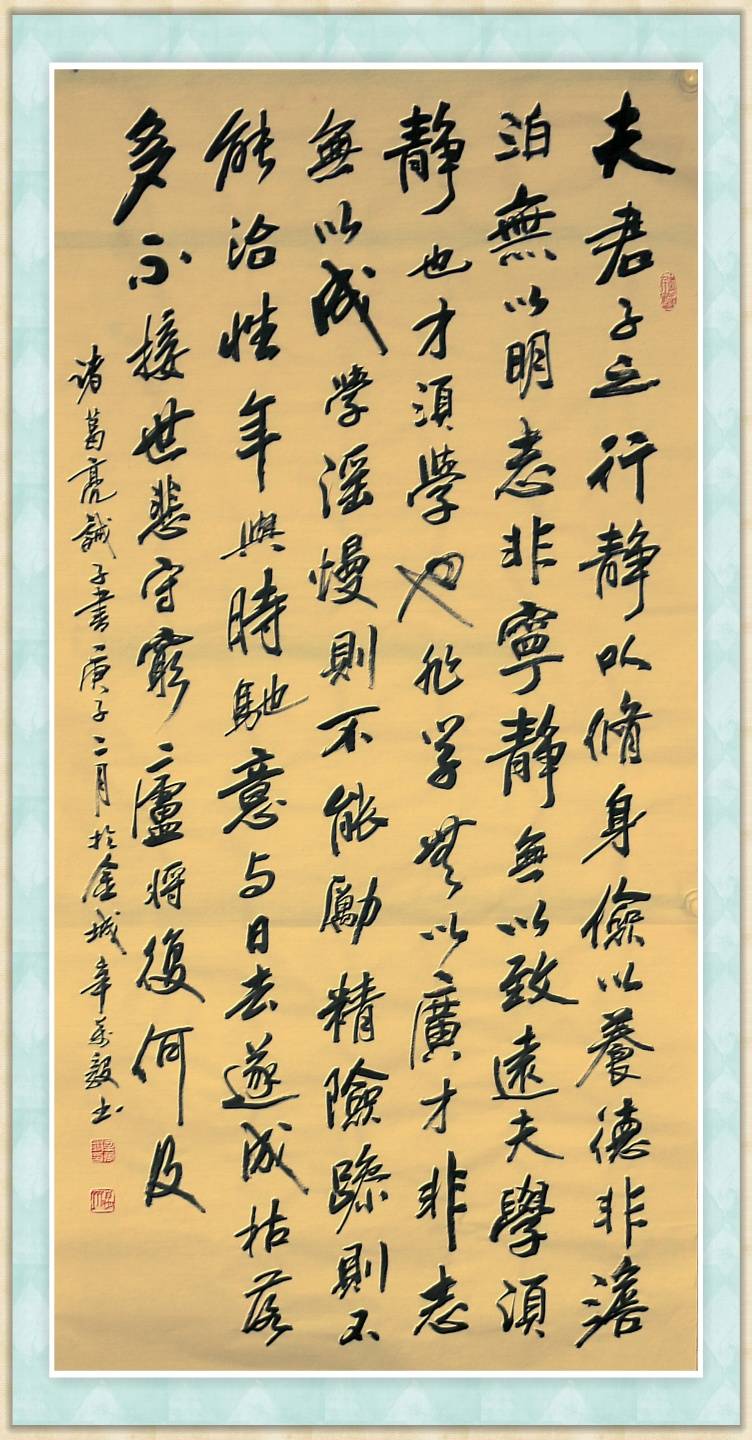 夫君子之行静以脩身儉以養德非澹
泊無以明志非寧静無以致遠夫學須
静也才須學也非学無以廣才非志
無以成学滛慢則不能勵精險躁則不
能治性年與時馳意与日去遂成枯落
多不接世悲守窮廬将復何及
诸葛亮誡子書庚子二月於金城辛毅书